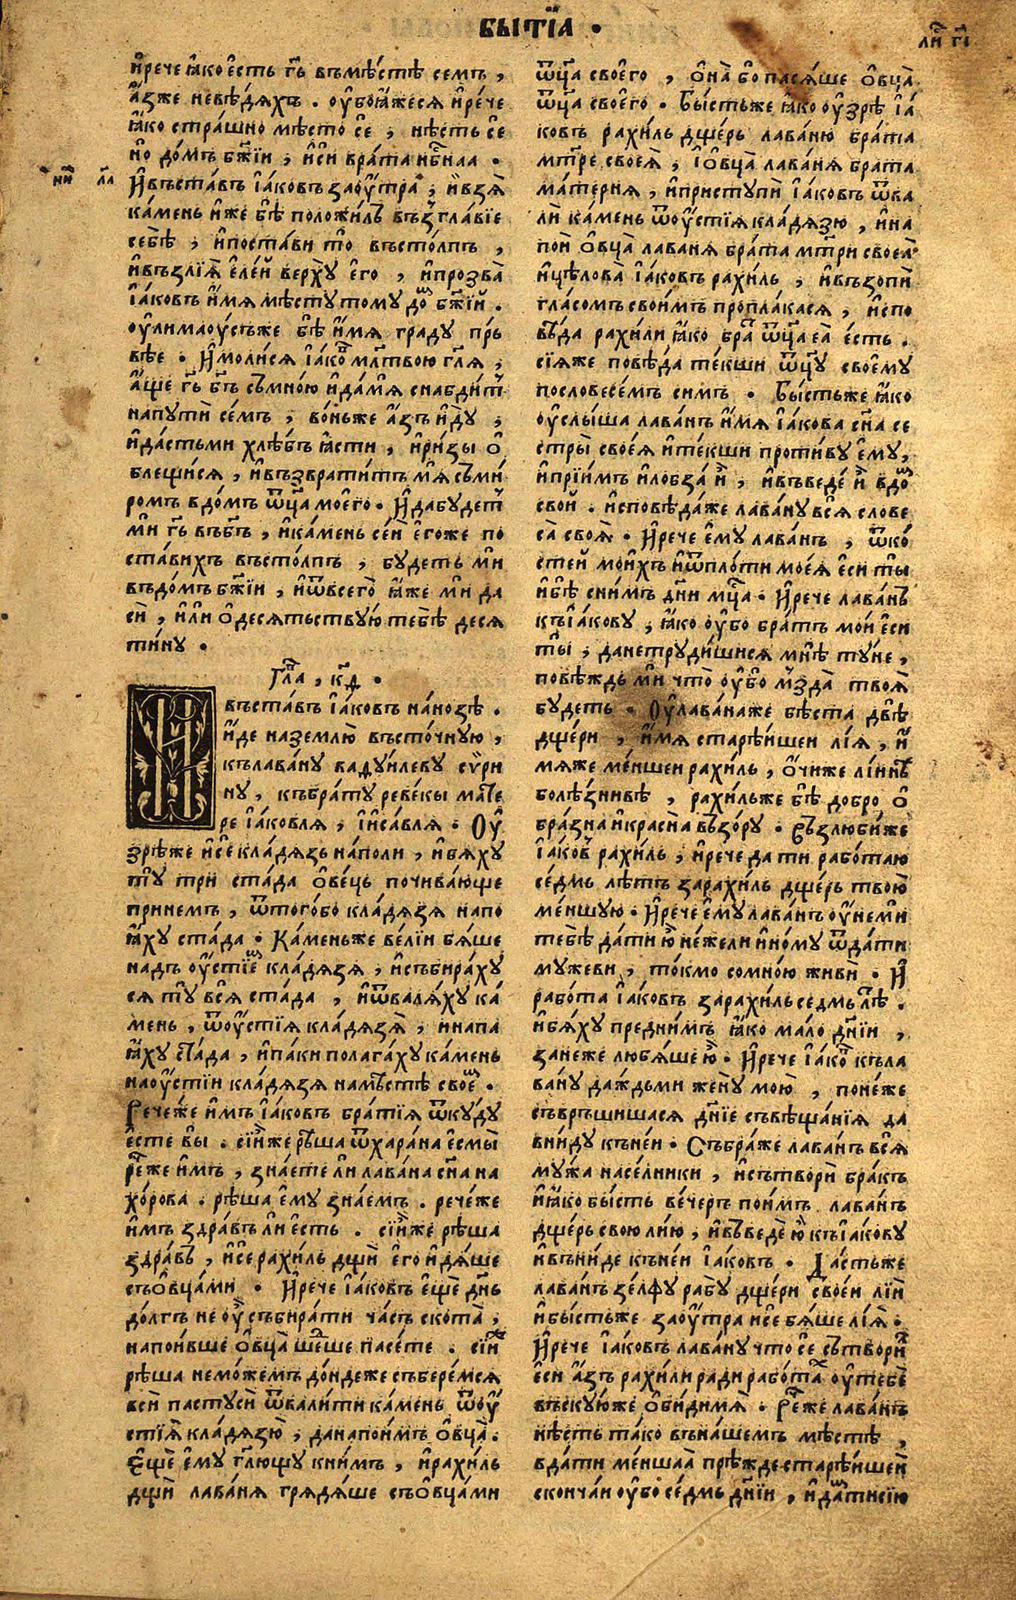 БЫТЇА ·
ли́ г҃і
и҆рече ꙗ҆́ко є҆сть гⷭ҇ь въмѣ́стѣ семъ ,
а҆́зже невѣ́дяхъ . оу҆боꙗ҆́жеся и҆рече
ꙗ҆́ко стра́шно мѣ́сто сѐ ; нѣ́сть сѐ
но̀ до́мъ бж҃їи , и҆сїи врата̀ нбⷭ҇наа .
И҆въста́въ і҆а́ковъ заоу҆́тра ; и҆взѧ̀
ка́мень и҆́же бѣ̀ положи́лъ възгла́вїе
себѣ̀ ; и҆поста́ви то̀ въсто́лпъ ,
и҆възлїѧ̀ є҆ле́й верхꙋ̀ є҆гѡ̀ , и҆прозва̀
і҆а́ковъ и҆́мѧ мѣ́стꙋ томꙋ̀ до́ⷨ бж҃їй .
оу҆лимаоу́съже бѣ̀ и҆́мѧ гра́дꙋ пр́ь
вѣе · И҆моли́сѧ і҆а́коⷡ мл҃твою гл҃ѧ ;
а҆́ще гдⷭ҇ь бг҃ъ съмно́ю и҆да́мѧ снабди́тъ
напꙋтѝ се́мъ ; во́ньже а҆́зъ и҆дꙋ̀ ;
и҆да́стьми хлѣ́бъ ꙗ҆́сти , и҆ри́зы ѻ҆
блещи́сѧ , и҆възврати́тъ мѧ̀ съми́
ромъ вдо́мъ ѿц҃а̀ моегѡ̀ . И҆дабꙋ́детъ
мѝ гдⷭ҇ь въбг҃ъ , и҆ка́мень се́й є҆го́же по
ста́вихъ въсто́лпъ , бꙋ́деть мѝ
въдо́мъ бж҃їи , и҆ѿвсегѡ̀ ꙗ҆́же мѝ да
сѝ , и҆лѝ ѻ҆десѧ́тьствꙋю тебѣ̀ десѧ
ти́нꙋ .
Гл҃а , к҃д .
И҆ въста́въ і҆а́ковъ на́нозѣ .
и҆́де назе́млю въсто́чнꙋю ,
кълава́нꙋ ваѳꙋи́левꙋ сѵ́ри
нꙋ , къбра́тꙋ реве́кы ма́те
ре і҆а́ковлѧ , і҆и҆са́влѧ . Оу҆
зрѣ́же и҆сѐ кла́дѧзь на́поли , и҆бѧ́хꙋ
тꙋ̀ трѝ ста́да ѻ҆ве́ць почива́юще
принемъ , ѿтого́бо кла́дѧзѧ напо
ꙗ҆́хꙋ ста́да . Ка́меньже ве́лїи бѧ́ше
надъ оу҆́стїеⷨ кла́дѧзѧ ; и҆събира́хꙋ
сѧ тꙋ̀ всѧ̀ ста́да , и҆ѿвалѧ́хꙋ ка́
мень , ѿоу҆́стїѧ кла́дѧзѧ , и҆напа
ꙗ҆́хꙋ ста́да , и҆па́ки полага́хꙋ ка́мень
наоу҆́стїи кла́дѧзѧ намѣ́стѣ своеⷨ .
Рече́же и҆́мъ і҆а́ковъ бра́тїѧ ѿкꙋ́дꙋ
є҆стѐ вы̀ . сїи́же рѣ́ша ѿхара́на є҆смы̀
рⷱ҇еже и҆́мъ , зна́ете лѝ лава́на сн҃а на
хо́рова . рѣ́ша є҆мꙋ̀ зна́емъ . рече́же
и҆́мъ здра́въ лѝ є҆сть . сїи́же рѣ́ша
здра́въ , и҆сѐ рахи́ль дщѝ є҆гѡ̀ и҆дѧ́ше
съѻвца́ми . И҆речѐ і҆а́ковъ є҆щѐ дн҃ь
до́лгъ не оу҆̀ събира́ти ча́съ скота̀ ;
напои́вше ѻ҆вца̀ шеⷣше пасе́те . сїиⷤ
рѣ́ша немо́жемъ до́ндеже събере́мсѧ
всѝ пастꙋсѝ ѿвали́ти ка́мень ѿоу҆
стїѧ кла́дѧзю , данапои́мъ ѻ҆вца̀ .
Е҆щѐ є҆мꙋ̀ гл҃ющꙋ кни́мъ , и҆рахи́ль
дщѝ лава́нѧ грѧдѧ́ше съѻвца́ми
ѿц҃а̀ своегѡ̀ , ѻ҆на̀ бо пасѧ́ше ѻ҆вца̀
ѿц҃а̀ своего̀ . Бы́стьже ꙗ҆́ко оу҆зрѣ̀ і҆а́
ковъ рахи́ль дще́рь лава́ню бра́та
мт҃ре своеѧ̀ , і҆ѻвца̀ лава́нѧ бра́та
ма́тернѧ , и҆пристꙋпѝ і҆а́ковъ ѿва
лѝ ка́мень ѿоу҆́стїѧ кла́дѧзю , и҆на
поѝ ѻ҆вца̀ лава́нѧ бра́та мт҃ри своеа̀
и҆цѣлова̀ і҆а́ковъ рахи́ль , и҆възопѝ
гла́сомъ свои́мъ пропла́касѧ , и҆спо
вѣ́да рахи́ли ꙗ҆́ко браⷮ ѿц҃а̀ еа̀ є҆́сть .
сїѧ́же повѣ́да те́кши ѿц҃ꙋ̀ своемꙋ̀
пословесе́мъ си́мъ . Бы́стьже ꙗ҆́ко
оу҆слы́ша лава́нъ и҆́мѧ і҆а́кова сн҃а се
стры̀ своеѧ̀ и҆те́кши проти́вꙋ є҆мꙋ̀ ,
и҆прїи́мъ и҆лобза̀ и҆̀ , и҆въведѐ и҆̀ вдоⷨ
свой . и҆сповѣ́даже лава́нꙋ всѧ̀ слове
са̀ своѧ̀ . И҆речѐ є҆мꙋ̀ лава́нъ , ѿко́
сте́й мои́хъ и҆ѿпло́ти моеѧ̀ є҆сѝ ты̀
и҆бѣ̀ сни́мъ дн҃и мцⷭ҇а . И҆речѐ лава́нъ
къі҆а́ковꙋ ; ꙗ҆́ко оу҆́бо бра́тъ мо́й є҆сѝ
ты̀ ; данетрꙋди́шисѧ мнѣ̀ тꙋ́не ,
повѣ́ждь мѝ что̀ оу҆́бо мзда̀ твоѧ̀
бꙋ́деть . Оу҆лава́наже бѣ́ста двѣ̀
дще́ри , и҆́мѧ старѣ́йшеи лі́ѧ , и҆
мѧже ме́ншеи рахи́ль , ѻ҆́чиже лі́инѣ
болѣ́знивѣ , рахи́льже бѣ̀ добро̀ ѻ҆
бра́зна и҆кра́сна взо́рꙋ . възлюби́же
і҆а́ковъ рахи́ль , и҆речѐ да тѝ рабо́таю
се́дмь лѣ́тъ зарахи́ль дще́рь твою̀
ме́ншꙋю . И҆речѐ є҆мꙋ̀ лава́нъ оу҆́немѝ
тебѣ̀ да́ти ю҆̀ не́жели и҆но́мꙋ ѿда́ти
мꙋ́жеви , то́кмо сомно́ю живѝ . И҆
рабо́та і҆а́ковъ зарахи́ль седмь лѣⷮ .
и҆бѧ́хꙋ предни́мъ ꙗ҆́ко ма́ло дн҃їи ,
зане́же любѧ́ше ю҆̀ . И҆речѐ і҆а́коⷡ къла
ва́нꙋ да́ждьми женꙋ̀ мою̀ , поне́же
съврьши́шасѧ дн҃їе съвѣща́нїѧ да
вни́дꙋ кне́и . Събра́же лава́нъ всѧ̀
мꙋ́жа насе́лники , и҆сътворѝ бра́къ
и҆ꙗ҆́ко бы́сть ве́черъ пои́мъ лава́нъ
дще́рь свою̀ лі́ю , и҆въведѐ ю҆̀ къі҆а́ковꙋ
и҆вни́де кне́и і҆а́ковъ . Да́стьже
лава́нъ зе́лфꙋ рабꙋ̀ дще́ри свое́й лі́и
и҆бы́стьже заоу҆́тра и҆сѐ бѧ́ше лі́ѧ .
И҆речѐ і҆а́ковъ лава́нꙋ что̀ сѐ сътвори́лъ
є҆сѝ а҆́зъ рахи́ли ра́ди рабо́таⷯ оу҆тебѐ
въскꙋ́юже ѻ҆би́димѧ̀ . Рⷱ҇еже лава́нъ
нѣ́сть та́ко въна́шемъ мѣ́стѣ ,
вда́ти ме́ншаа пре́жде старѣ́йшей
сконча́й оу҆́бо се́дмь дн҃їи , и҆даⷨтисїю